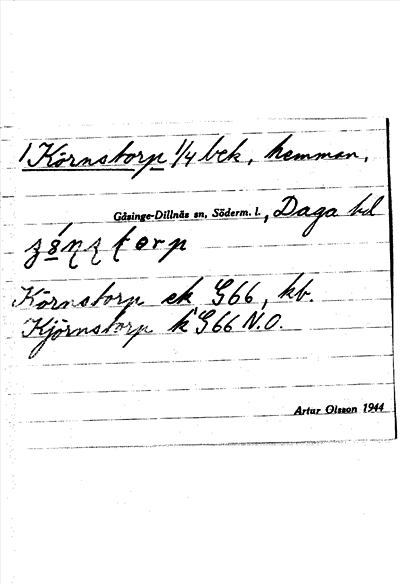 1 Körnstorp 1/4 bck, hemman,
Gåsinge-Dillnäs sn, Söderm. l., Daga hd
Körnstorp ek G66, kb.
Kjörnstorp k G66 N.O.
Artur Olsson 1944